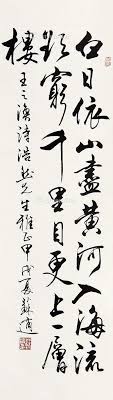 白日依山盡黃河入海流
欲窮千里目更上一層
樓
王之渙詩浩然先生雅正甲戌夏蘇適